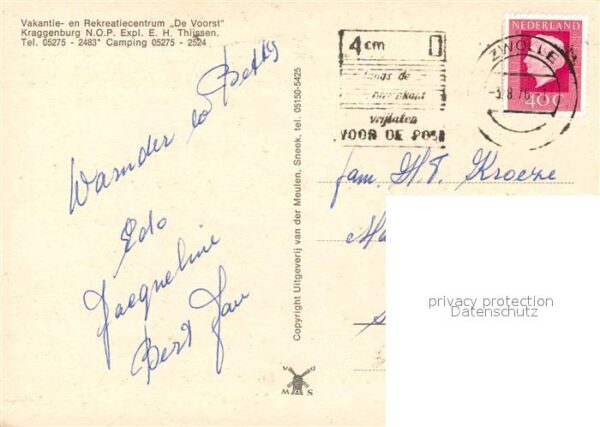 Vakantie- en Rekreatiecentrum „De Voorst"
Kraggenburg N.O.P. Expl. E. H. Thijssen.
Tel. 05275 - 2483* Camping 05275 - 2524
Warnder en Betty
Edo
Jacqueline
Bert Jan
Copyright Uitgeverij van der Meulen, Sneek, tel. 05150-5425
v d
M S
4 cm
langs de
bovenkant
vrijlaten
VOOR DE POST
ZWOLLE
-3.8.76
NEDERLAND
40c
fam. H.T. Kroeze
privacy protection
Datenschutz